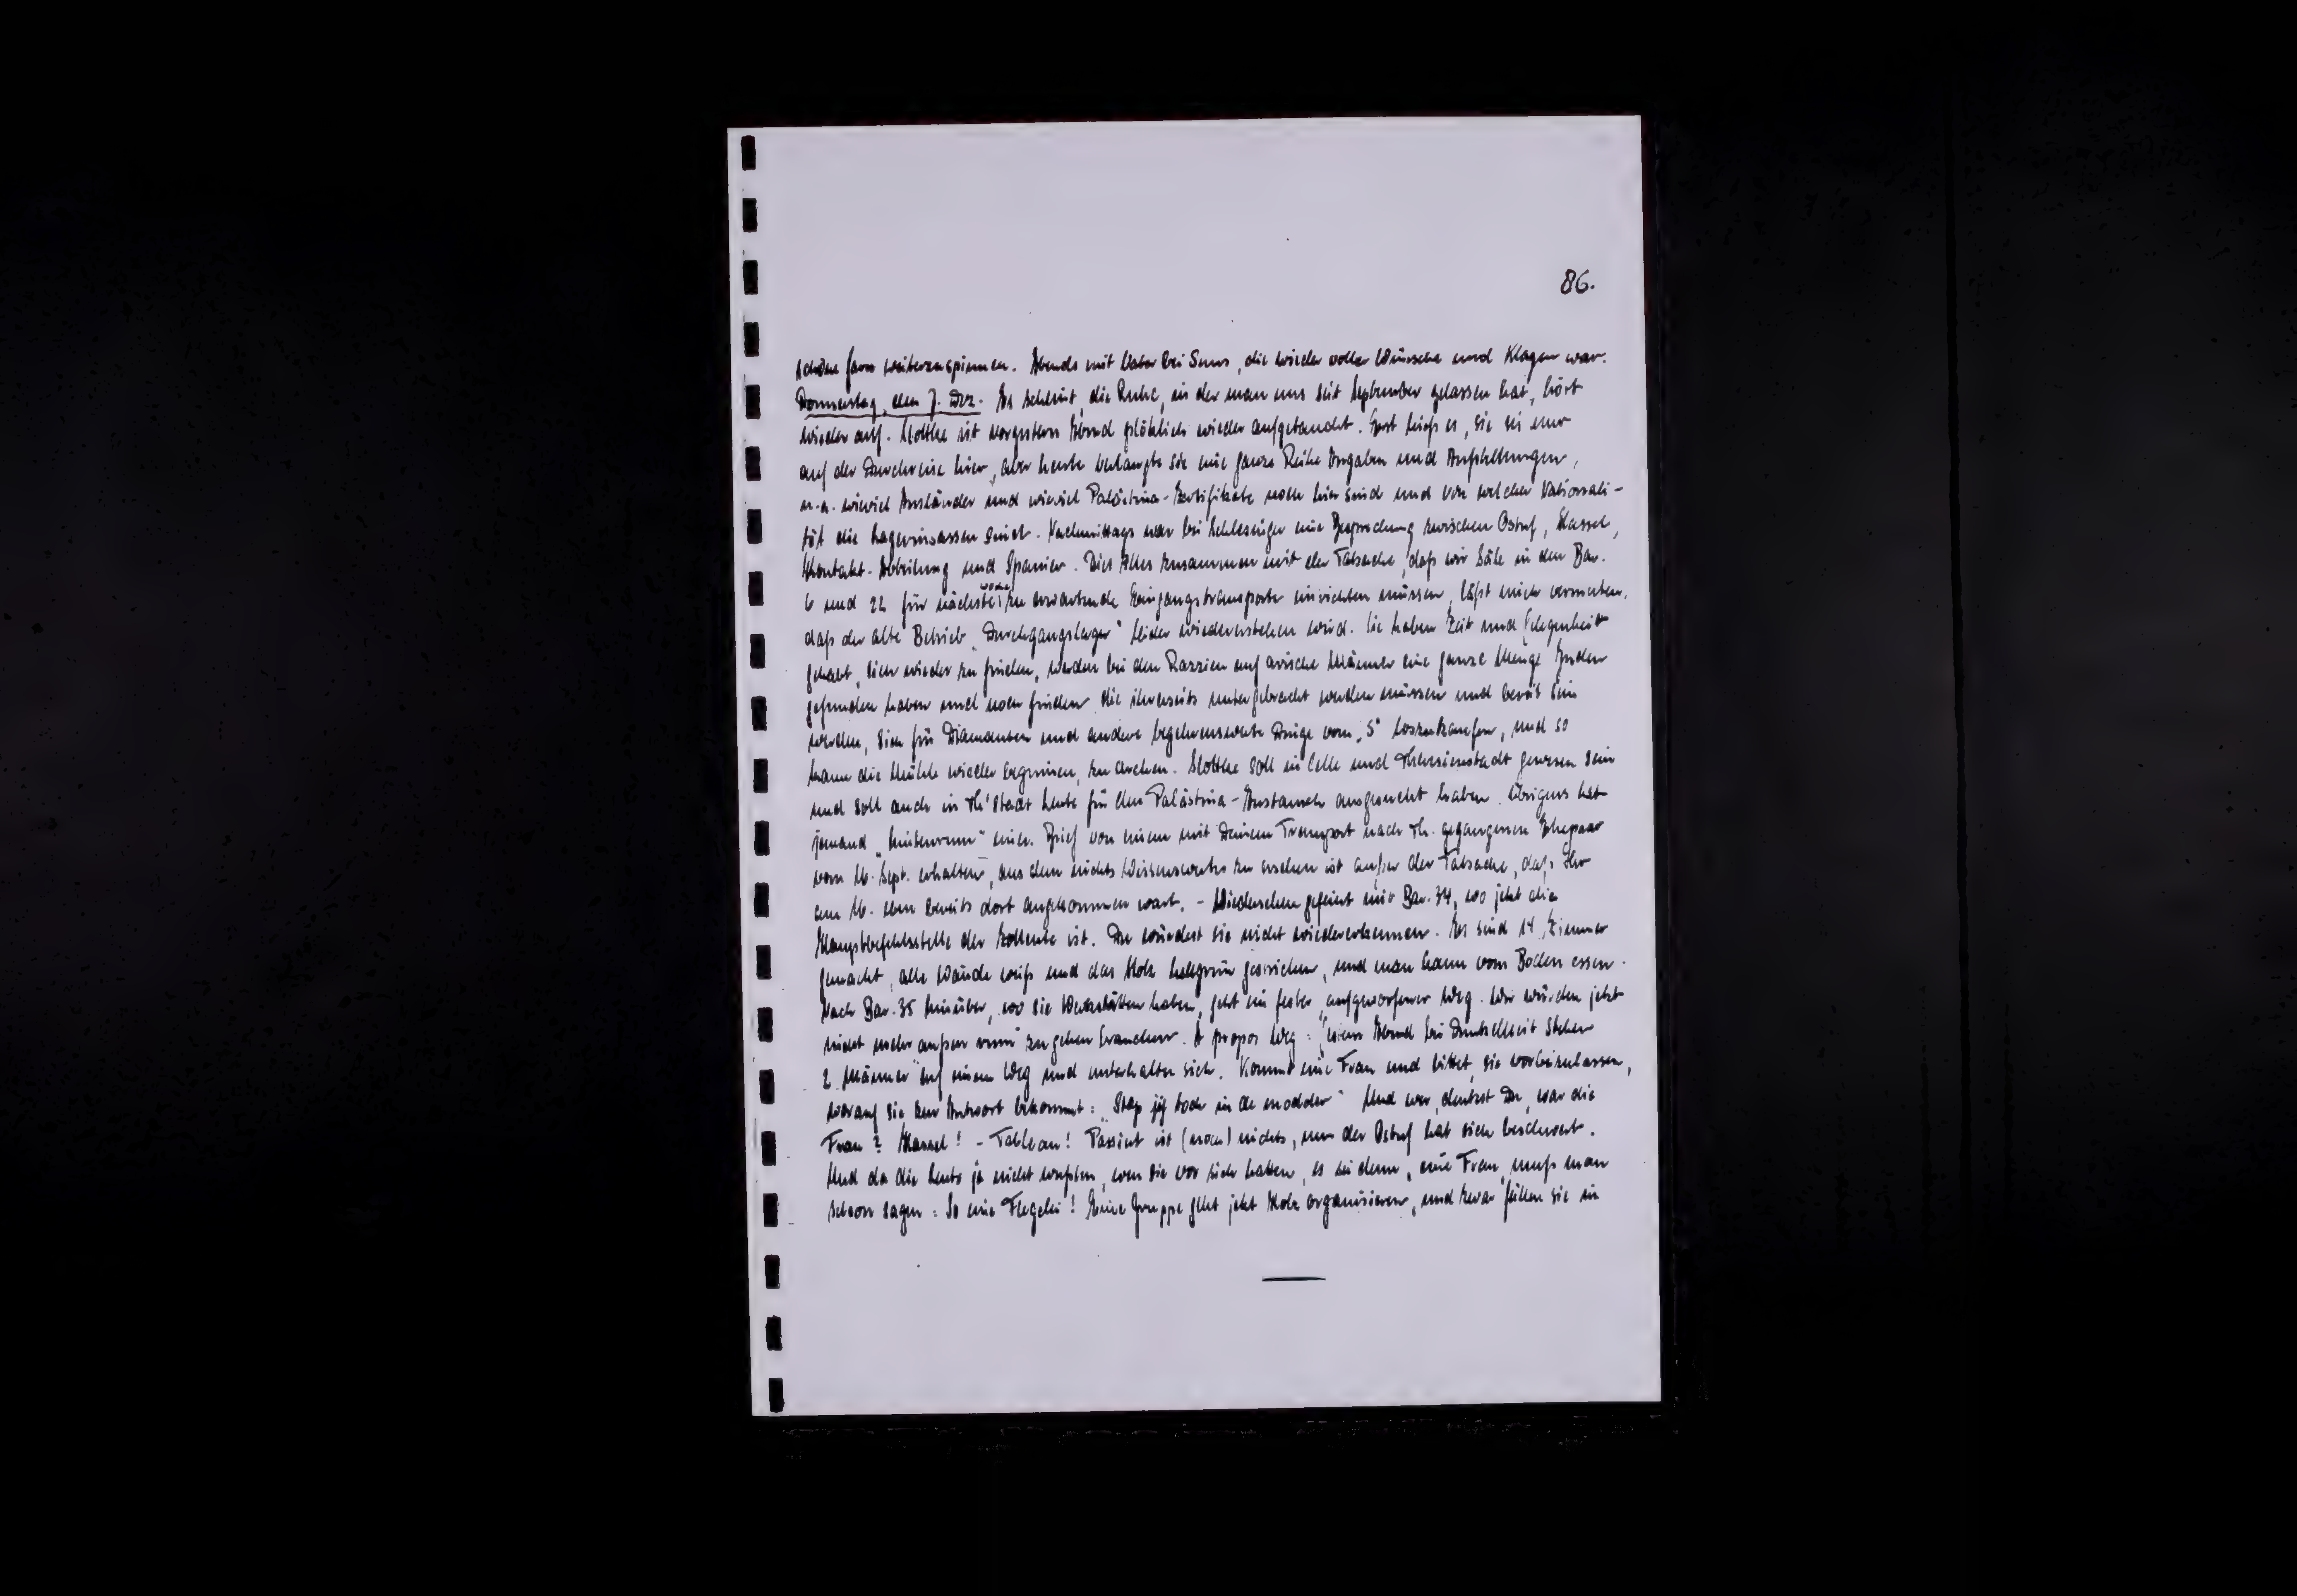 86.
schöne Garn weiterzuspinnen. Abends mit Vater bei Suus, die wieder voller Wünsche und Klagen war.
Donnerstag, den 7. Dez. Es scheint, die Ruhe, in der man uns seit September gelassen hat, hört
wieder auf. Slottke ist vorgestern Abend plötzlich wieder aufgetaucht. Erst hiess es, sie sei nur
auf der Durchreise hier, aber heute verlangte sie eine ganze Reihe Angaben und Aufstellungen,
u.a. wieviel Ausländer und wieviel Palästina-Zertifikate noch hier sind und von welcher Nationali-
tät die Lagerinsassen sind. Nachmittags war bei Schlesinger eine Besprechung zwischen Ostuf, Hassel,
Kontakt-Abteilung und Spanier. Dies Alles zusammen mit der Tatsache, dass wir Säle in den Bar.
6 und 22 für nächste Woche zu erwartende Eingangstransporte einrichten müssen, lässt mich vermuten,
dass der alte Betrieb „Durchgangslager" wieder wiedererstehen wird. Sie haben Zeit und Gelegenheit
gehabt, sich wieder zu finden, werden bei den Razzien auf arische Männer eine ganze Menge Juden
gefunden haben und noch finden, die ihrerseits untergebracht werden müssen und bereit sein
werden, sich für Diamanten und andere begehrenswerte Dinge vom „S" loszukaufen, und so
kann die Mühle wieder beginnen, zu drehen. Slottke soll in Celle und Theresienstadt gewesen sein
und soll auch in Th'stadt Leute für den Palästina-Austausch ausgesucht haben. Übrigens hat
jemand „hintenrum" einen Brief von einem mit Deinem Transport nach Th. gegangenen Ehepaar
vom 16. Sept. erhalten, aus dem nichts Wissenswertes zu ersehen ist ausser der Tatsache, dass Ihr
am 16. eben bereits dort angekommen wart. - Wiedersehen gefeiert mit Bar. 34, wo jetzt die
Hauptbefehlsstelle der ist. Du würdest sie nicht wiedererkennen. Es sind 14 Zimmer
gemacht, alle Wände weiss und das Holz hellgrün gestrichen, und man kann vom Boden essen.
Nach Bar. 35 hinüber, wo sie Werkstätten haben, geht ein fester, aufgeworfener Weg. Wir würden jetzt
nicht mehr aussen rum zu gehen brauchen. A propos Weg: eines Abend bei Dunkelheit stehen
2 Männer auf einem Weg und unterhalten sich. Kommt eine Frau und bittet, sie vorbeizulassen,
worauf sie zur Antwort bekommt: „Stap jij toch in de modder" Und wer, denkst Du, war die
Frau? Hassel! - Tableau! Passiert ist (noch) nichts, nur der Ostuf hat sich beschwert.
Und da die Leute ja nicht wussten, wen sie vor sich hatten, es sei denn „eine Frau", muss man
schon sagen: So eine Flegelei! Eine Gruppe geht jetzt Holz organisieren, und zwar fällen sie in